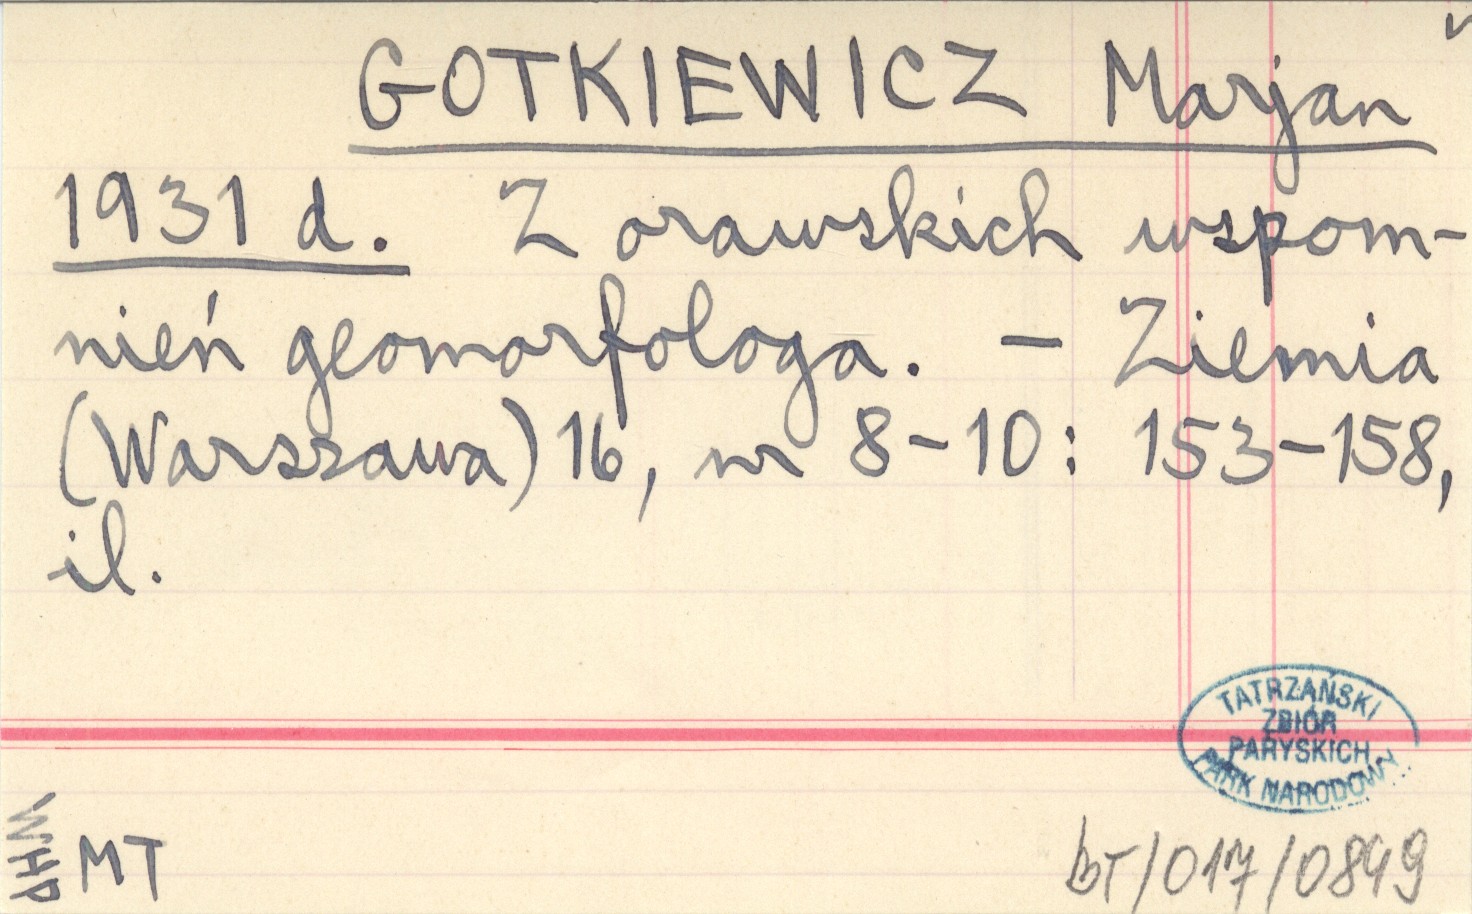 GOTKIEWICZ Marjan
1931 d. Z orawskich wspom-
nień geomorfologa. — Ziemia
(Warszawa) 16, nr 8-10: 153-158,
il.
TATRZAŃSKI
ZBIÓR
PARYSKICH
PARK NARODOWY
WHP
MT
bT/017/0849